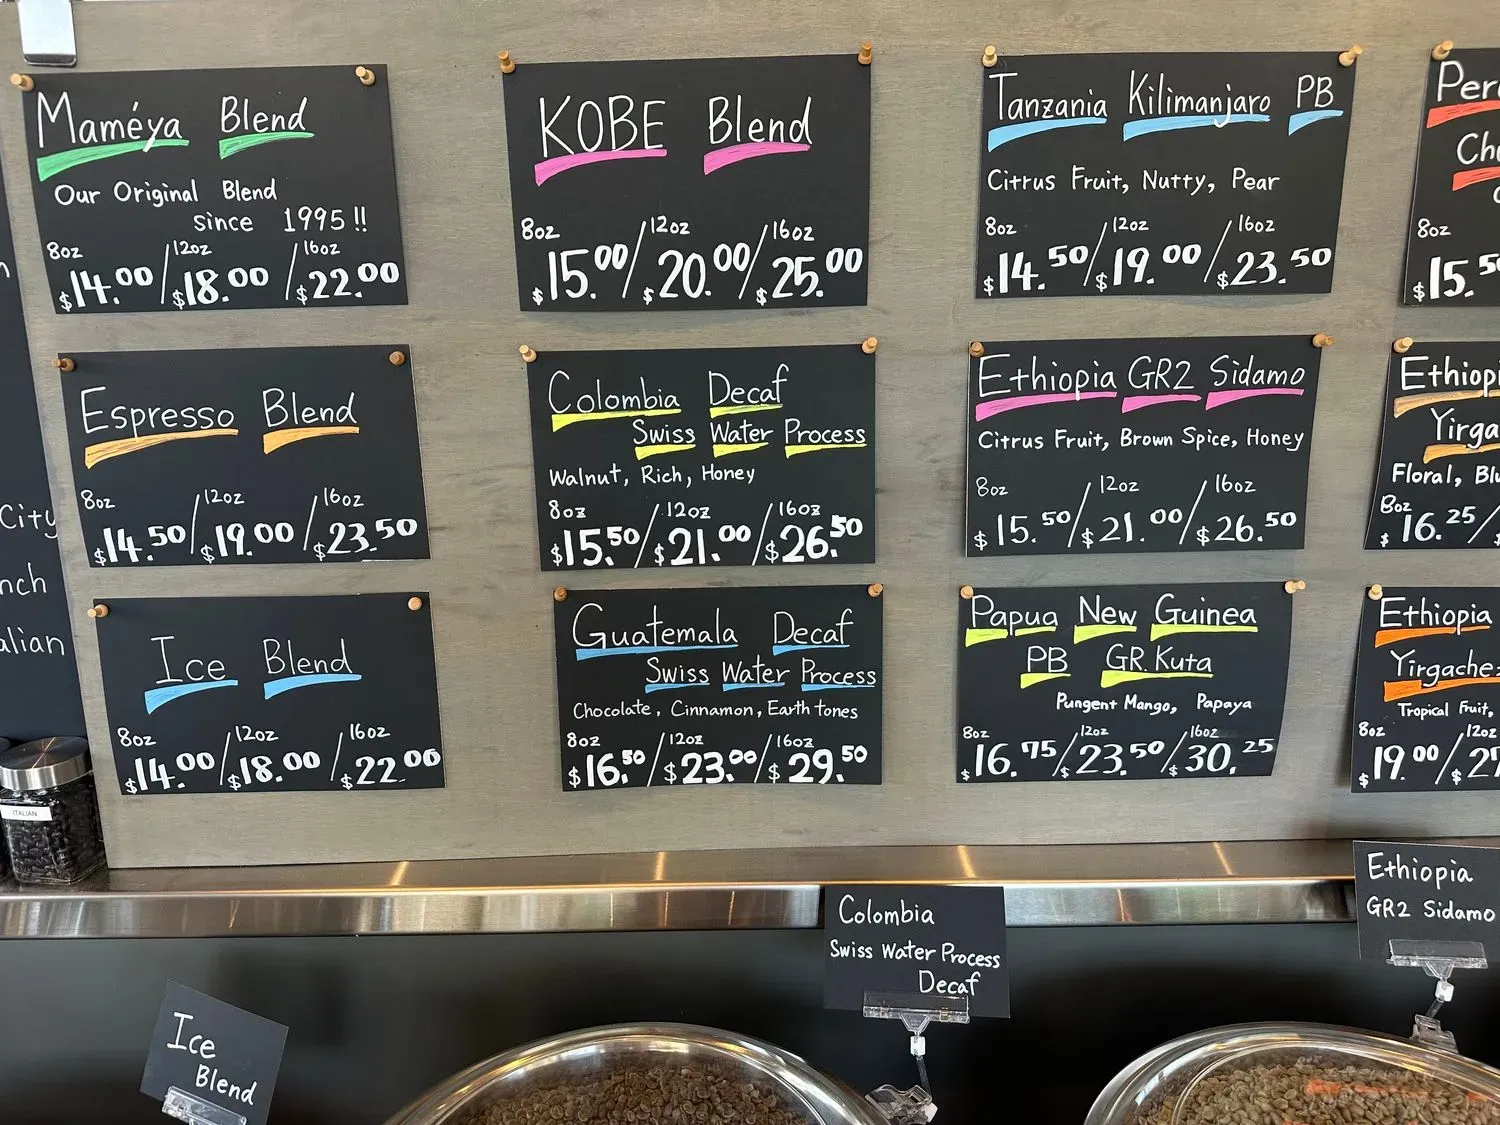 Maméya Blend
Our Original Blend
since 1995!!
8oz 12oz 16oz
$14.00/$18.00/$22.00
KOBE Blend
8oz 12oz 16oz
$15.00/$20.00/$25.00
Tanzania Kilimanjaro PB
Citrus Fruit, Nutty, Pear
8oz 12oz 16oz
$14.50/$19.00/$23.50
8oz
$15.50
Espresso Blend
8oz 12oz 16oz
$14.50/$19.00/$23.50
Colombia Decaf
Swiss Water Process
Walnut, Rich, Honey
8oz 12oz 16oz
$15.50/$21.00/$26.50
Ethiopia GR2 Sidamo
Citrus Fruit, Brown Spice, Honey
8oz 12oz 16oz
$15.50/$21.00/$26.50
Ethiop
Yirga
Floral,
8oz
$16.25/
Ice Blend
8oz 12oz 16oz
$14.00/$18.00/$22.00
Guatemala Decaf
Swiss Water Process
Chocolate, Cinnamon, Earth tones
8oz 12oz 16oz
$16.50/$23.00/$29.50
Papua New Guinea
PB GR.Kuta
Pungent Mango, Papaya
8oz 12oz 16oz
$16.75/$23.50/$30.25
Ethiopia
Yirgache
Tropical Fruit,
8oz 12oz
$19.00/$2
City
nch
alian
ITALIAN
Ice
Blend
Colombia
Swiss Water Process
Decaf
Ethiopia
GR2 Sidamo